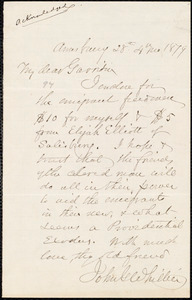 acknowledged
Amesbury 28 4 mo 1879
My dear Garrison
I enclose for
the emigrant freedmen
$10 for myself & $5
from Elijah Elliott of
Salisbury. I hope &
trust that the friends
of the colored man will
do all in their power
to aid the emigrants
in their new, & what
seems a Providential
Exodus. With much
love thy old friend
John G. Whittier